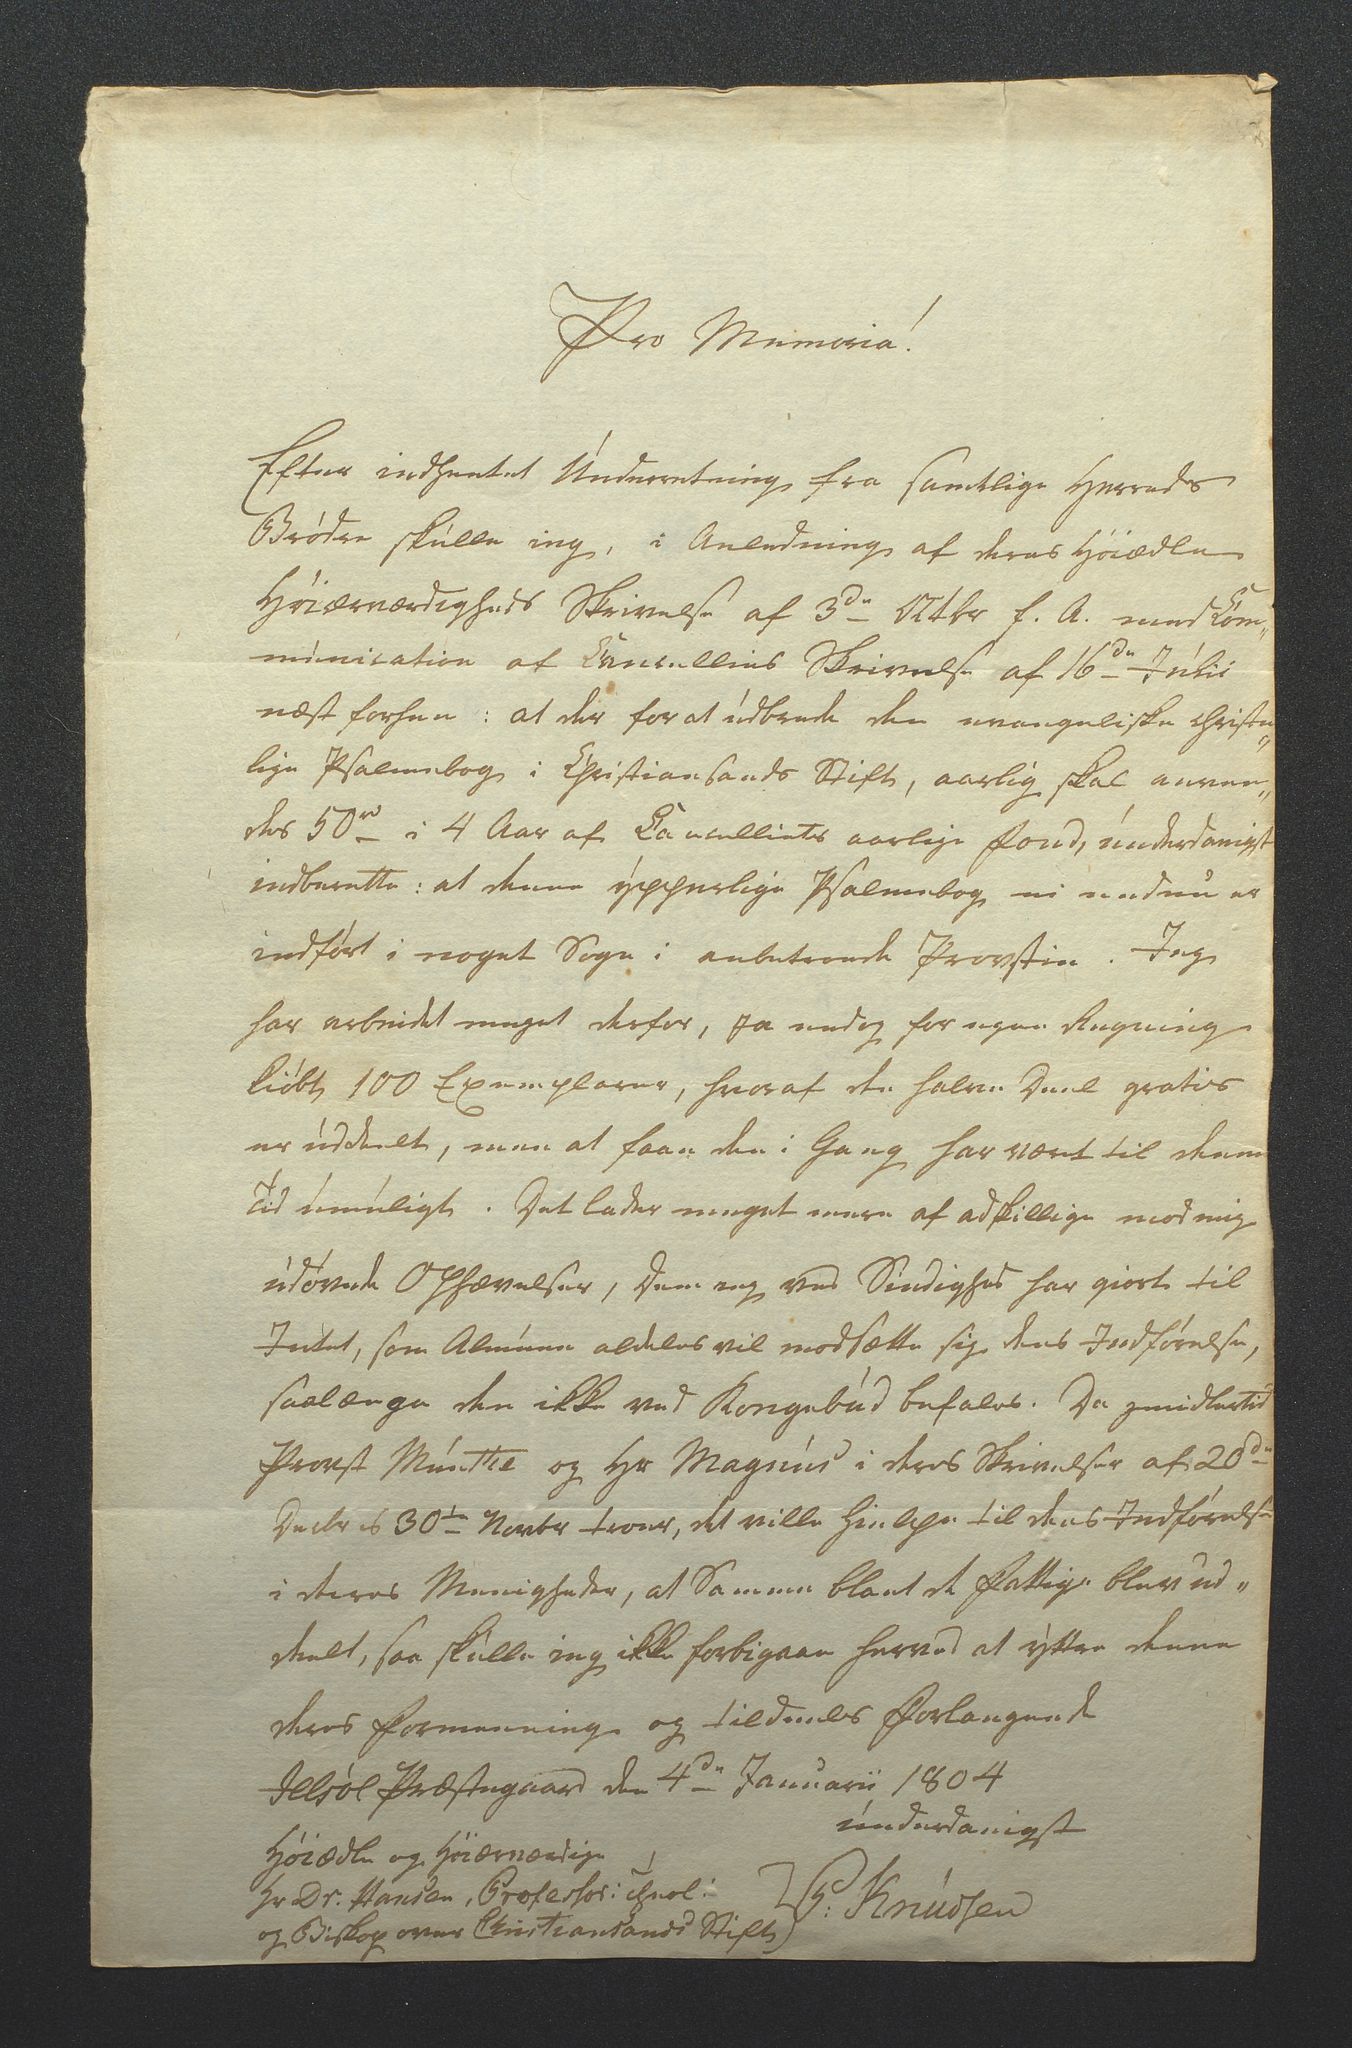 Pro Memoria!
Efter indhentet Underretning fra samtlige Herreds
Brödre skulle ieg, i Anledning af deres Höiædle
Höiærværdigheds Skrivelse af 3de Octbr f. A. med Com„
munication af Cancelliets Skrivelse af 16de Julii
næst forhen: at der for at udbrede den evangeliske christe„
lige Psalmebog i Christiansands Stift, aarlig skal anven„
des 50 rd i 4 Aar af Cancelliets aarlige Fond, underdanigst
indberette: at denne ypperlige Psalmebog ei endnu er
indfört i noget Sogn i anbetroede Provstie. Jeg
har arbeidet meget derfor, ja endog for egen Regning
kiöbt 100 Exemplarer, hvoraf den halve Deel gratis
er uddeelt, men at faae den i Gang har været til denne
Tid umuligt. Det lader meget mere af adskillige mod mig
udövede Ophævelser, Dem ieg ved Sindighed har giort til
Intet, som Almuen aldeles vil modsætte sig dens Indförelse,
saalænge den ikke ved Kongebud befales. Da imidlertid
Provst Munthe og Hr Magnus i deres Skrivelser af 20de
Decbr 30te Novbr troer, det ville hielpe til dens Indförelse
i deres Menigheder, at Samme blant de Fattige blev ud„
deelt, saa skulle ieg ikke forbigaae herved at yttre denne
deres Formeening og tildeels Forlangende
Præstegaard den 4de Januarii 1804
underdanigst
P: Knudsen
Höiædle og Höiærværdige
Hr Dr. Hansen, Professor: Theol:
og Biskop over Christiansands Stift